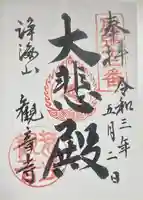 奉拝
令和三年
五月二日
大悲殿
観音寺